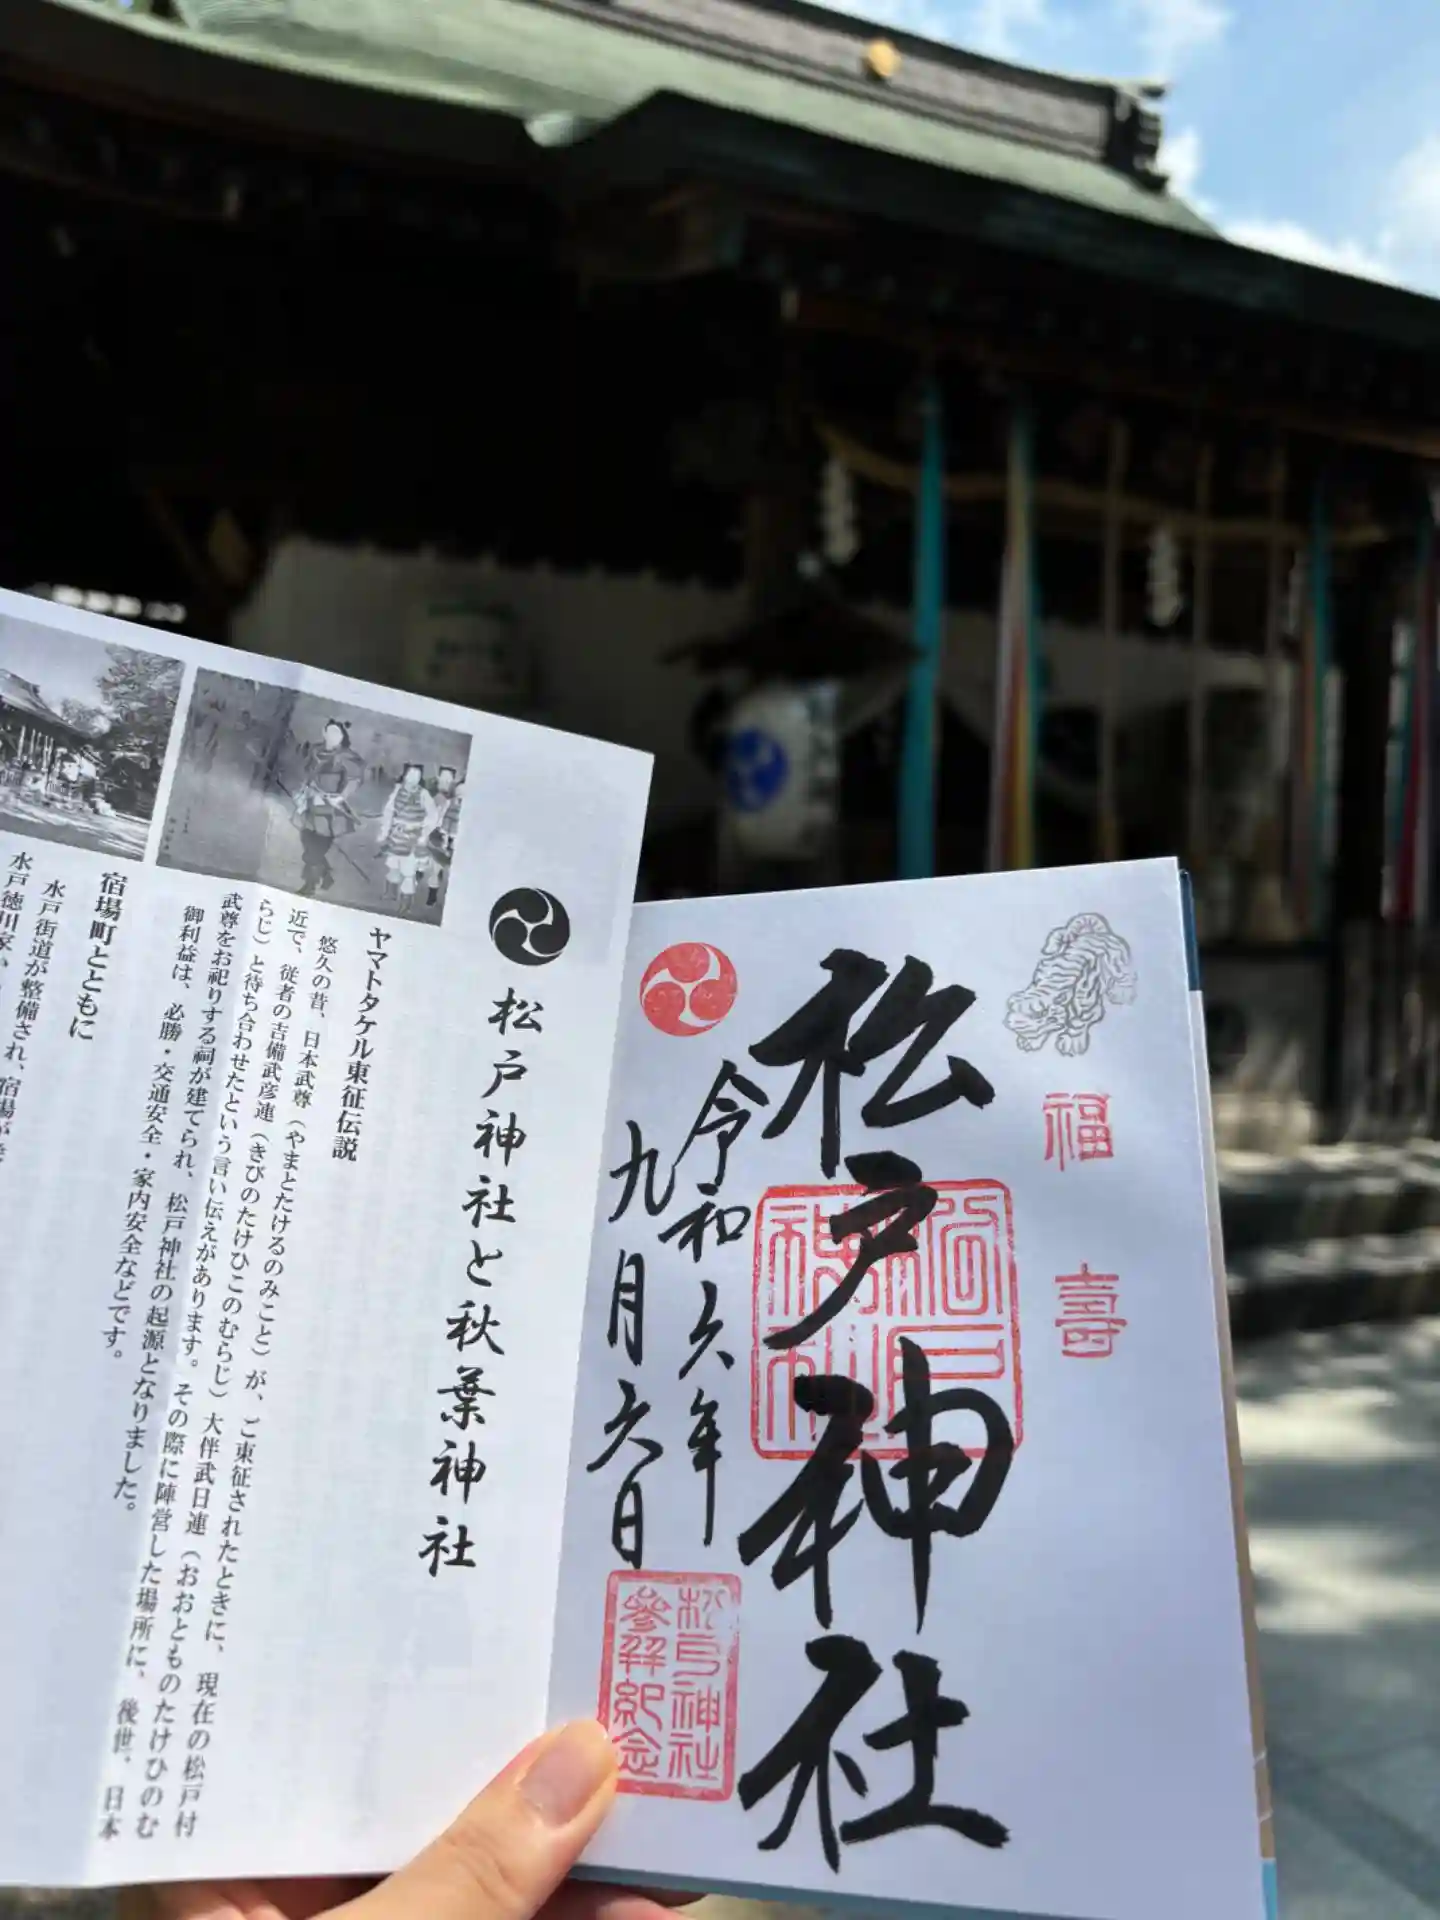 松戸神社と秋葉神社
ヤマトタケル東征伝説
悠久の昔、日本武尊（やまとたけるのみこと）が、ご東征されたときに、現在の松戸村付
近で、従者の吉備武彦連（きびのたけひこのむらじ）大伴武日連（おおとものたけひのむ
らじ）と待ち合わせたという言い伝えがあります。その際に陣営した場所に、後世、日本
武尊をお祀りする祠が建てられ、松戸神社の起源となりました。
御利益は、必勝・交通安全・家内安全などです。
宿場町とともに
水戸街道が整備され、宿場が
水戸徳川家
福
壽
松戸神社
松戸神社
令和六年
九月六日
松戸神社
參拜紀念